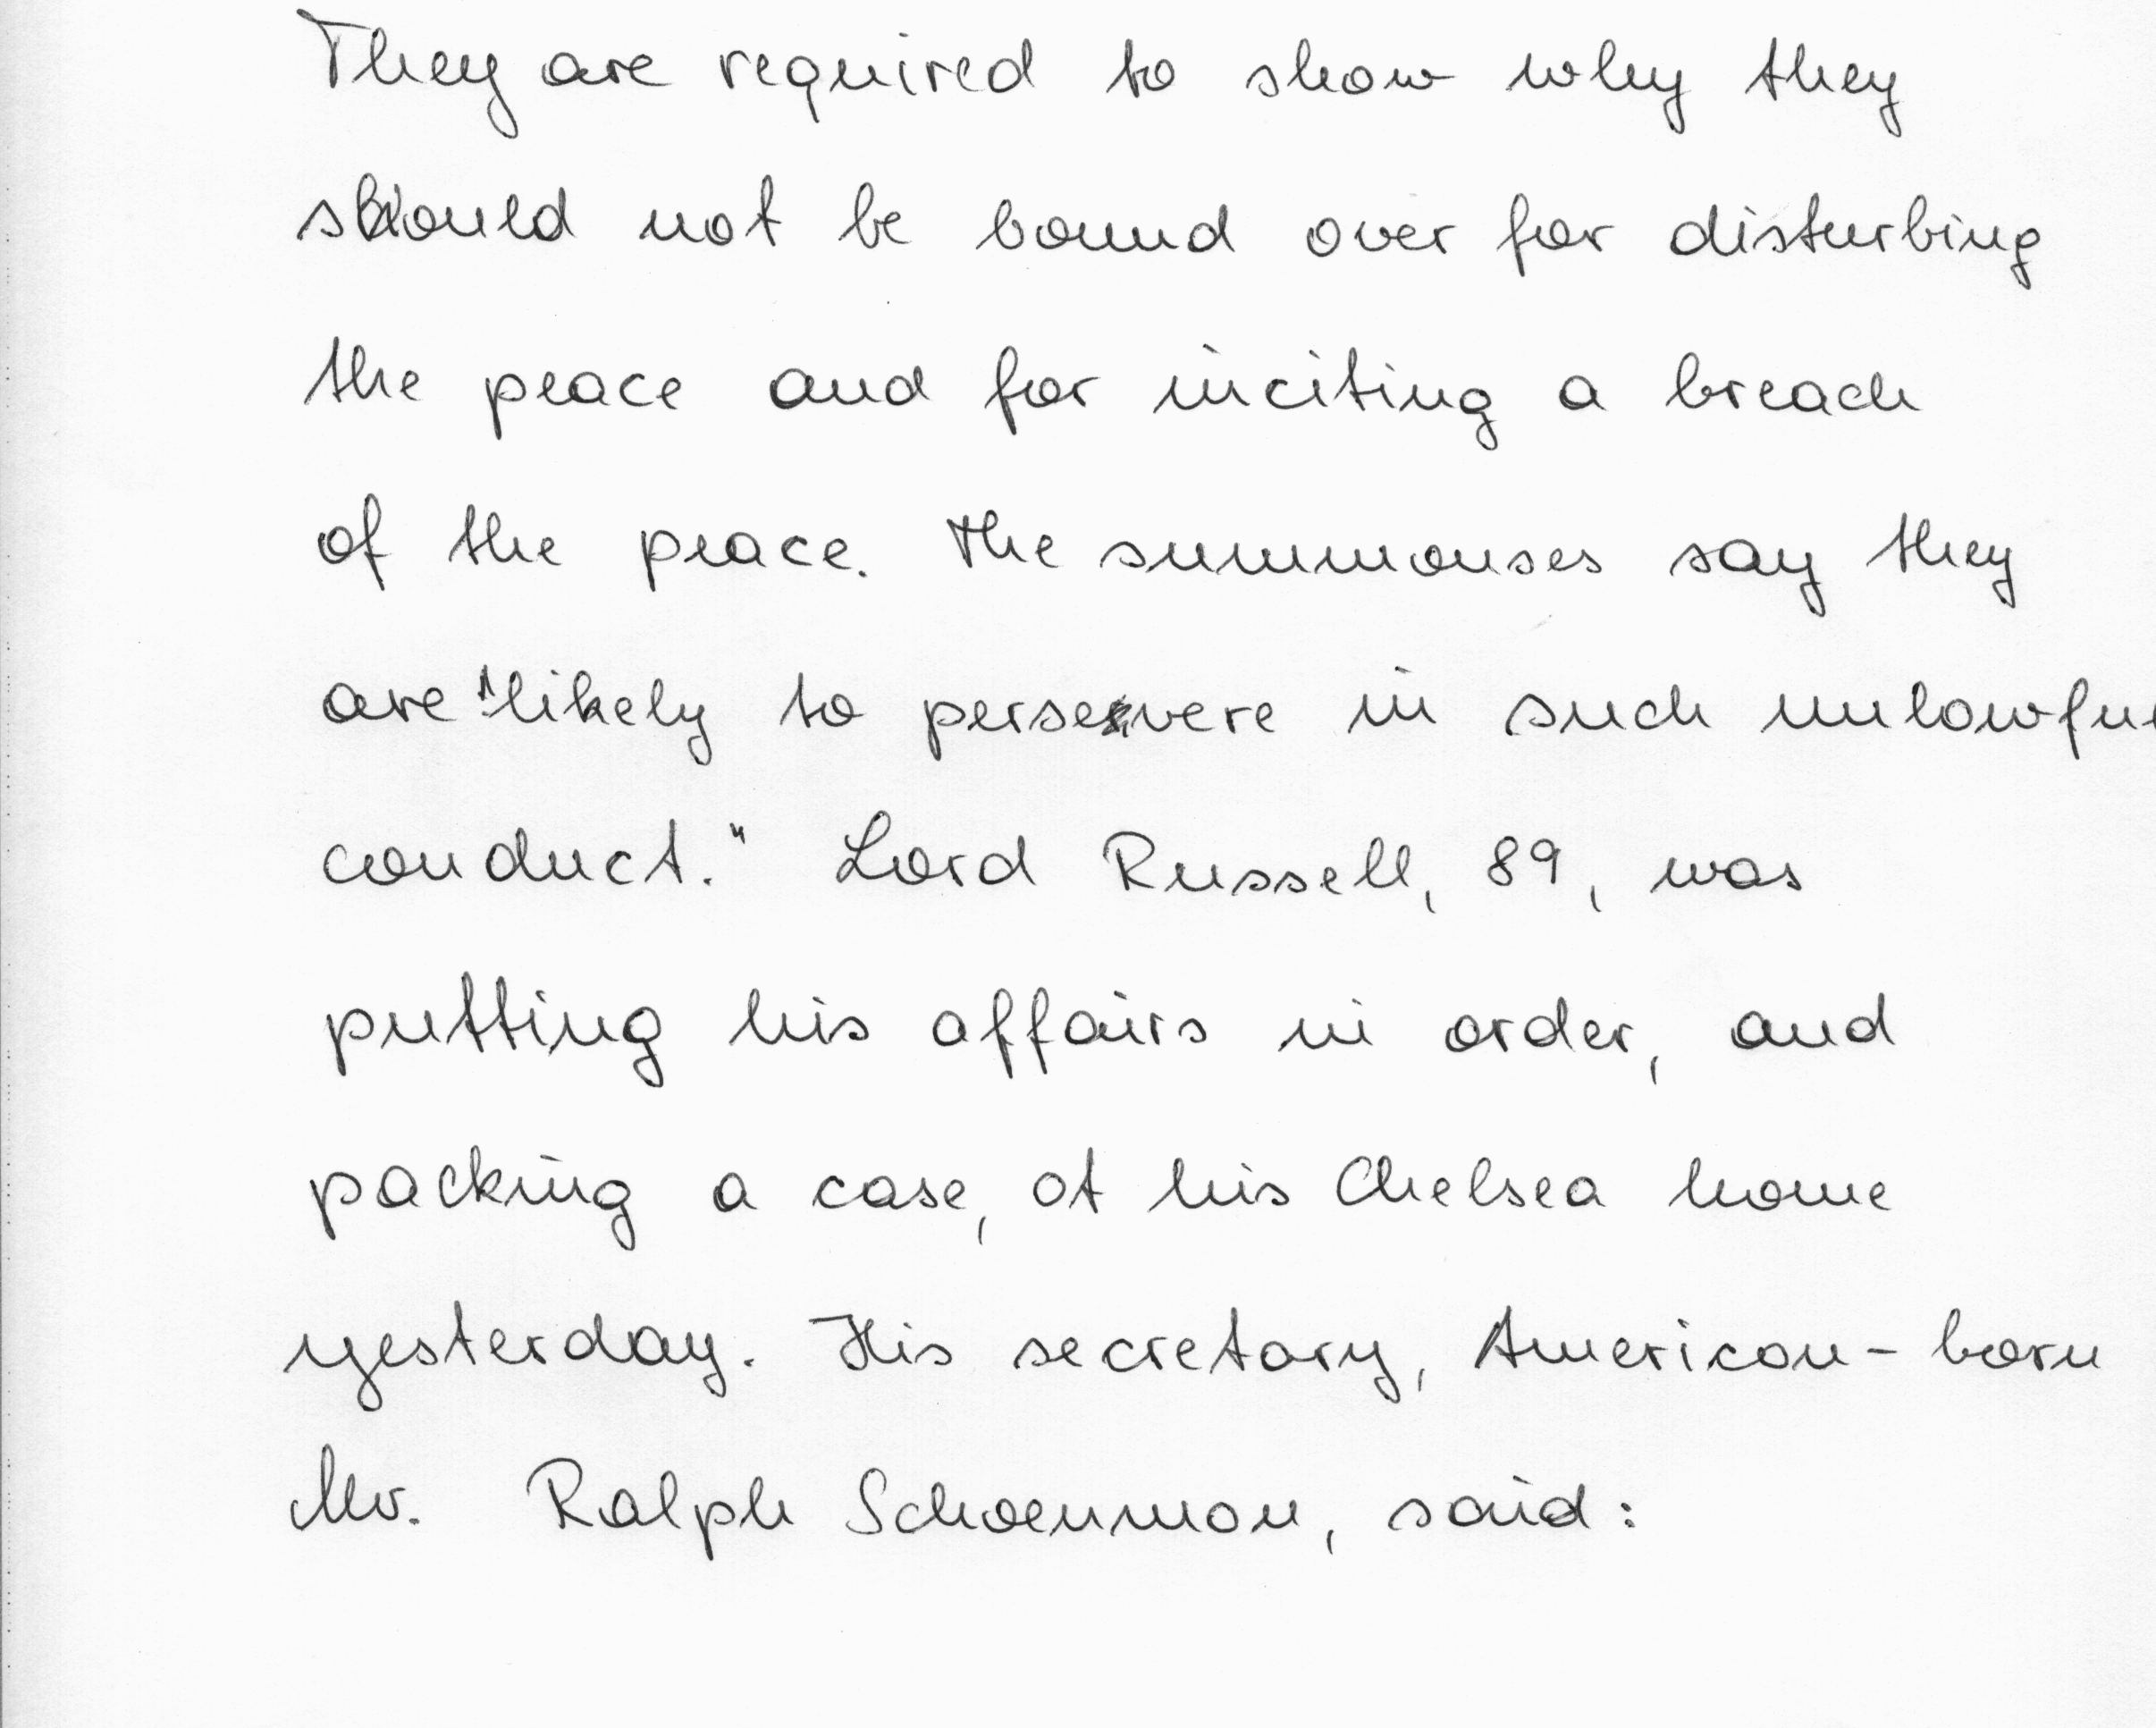 They are required to show why they
should not be bound over for disturbing
the peace and for inciting a breach
of the peace. The summonses say they
are "likely to persevere in such unlawful
conduct." Lord Russell, 89, was
putting his affairs in order, and
packing a case, at his Chelsea home
yesterday. His secretary, American-born
Mr. Ralph Schoenman, said: